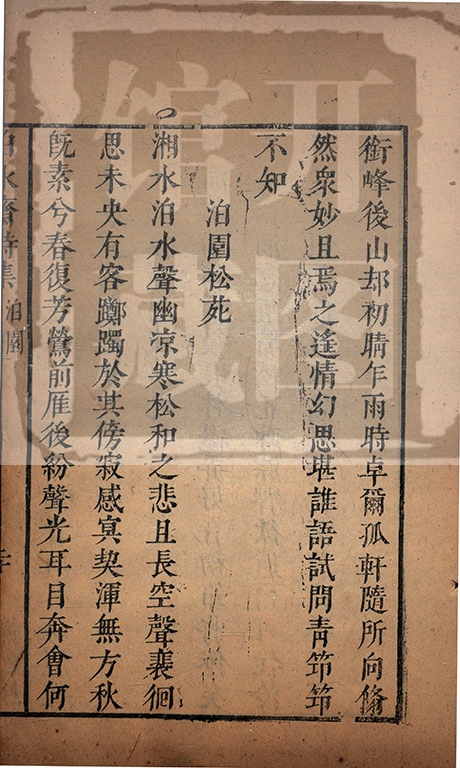 銜峰後山却初晴乍雨時卓爾孤軒隨所向翛
然衆妙且焉之遙情幻思堪誰語試問青筇筇
不知
泊園松苑
湘水泊水聲幽凉寒松和之悲且長空聲裊徊
思未央有客躑躅於其傍寂感冥契渾無方秋
旣素兮春復芳鶯前雁後紛聲光耳目奔會何
水齋詩集 泊園